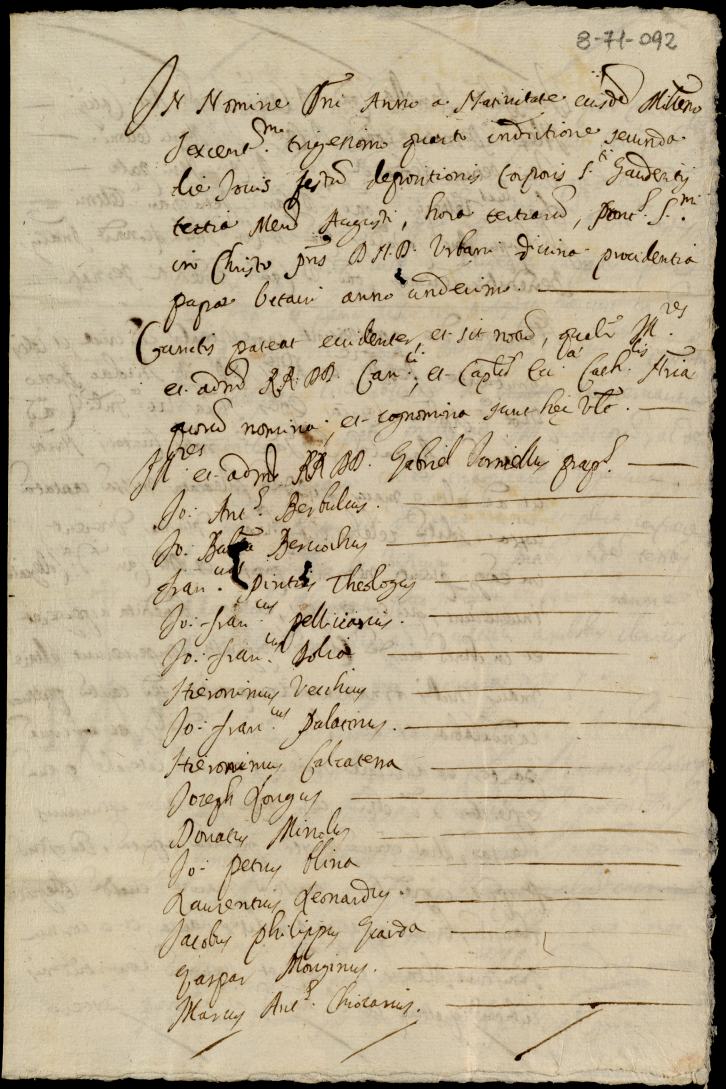 8-71-092
In Nomine Dni Anno a Nativitate eiusdē Milleno
sexcent.mo trigesimo quarto indictione secunda
die Jovis festū depositionis Corporis S.ti Gaudentij
tertia Mens Augusti, hora tertiarū, Pont.s S.mi
in Christo pris D.N.D. Urbani divina providentia
papae octavi anno undecimo.
Cunctis pateat evidenter, et sit notū, qualr M.res
et admd RR. DD. Can.ci, et Captm Ecc.ae Cath.lis
quorū nomina, et cognomina sunt hec Vlt.
M.res et admd RR DD. Gabriel Torniellus prap.s
Jo: Ant.s Berbulius.
Jo: Bapta
Fran.cus Theologus
Jo: Fran.cus pellicarius.
Jo: Fran.cus
Hieronimus Vecchius
Jo: Fran.cus Palatinus.
Hieronimus Calcaterra
Joseph Longus
Donatus Minolus
Jo: Petrus Olina
Laurentius Leonardus.
Jacobus Philippus Giarda
Gaspar Monginus.
Marcus Ant.s